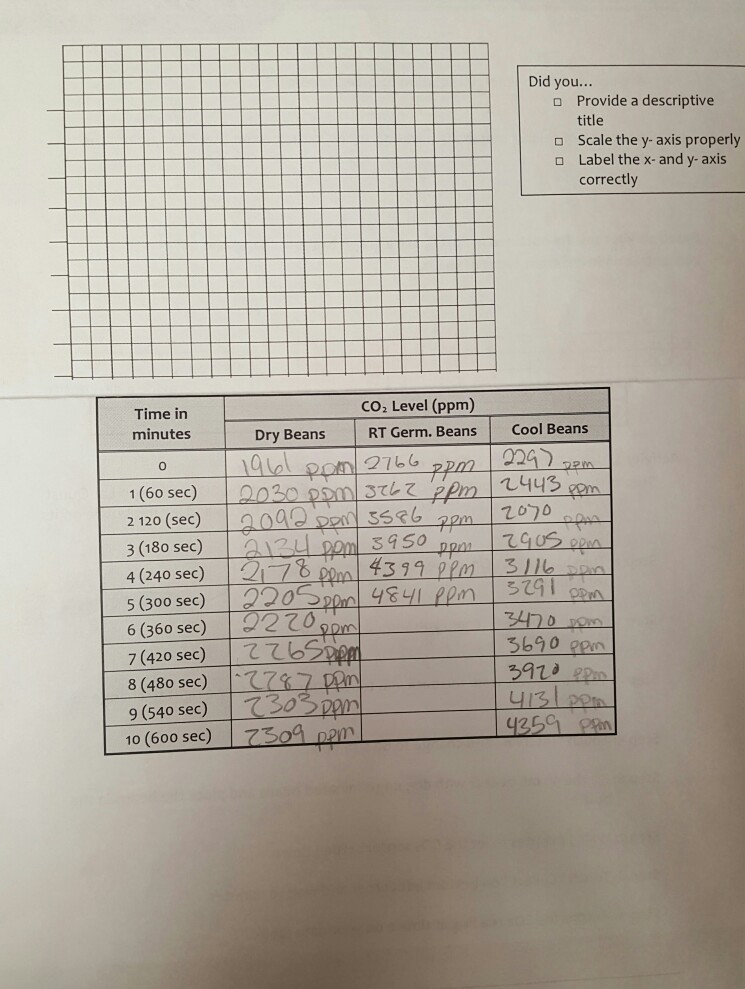 Did you...
□ Provide a descriptive
title
□ Scale the y- axis properly
□ Label the x- and y- axis
correctly
Time in minutes CO₂ Level (ppm)
Dry Beans RT Germ. Beans Cool Beans
0 1961 ppm 2766 ppm 2297 ppm
1 (60 sec) 2030 ppm 3262 ppm 2443 ppm
2 120 (sec) 2092 ppm 3586 ppm 2070 ppm
3 (180 sec) 2134 ppm 3950 ppm 2905 ppm
4 (240 sec) 2178 ppm 4399 ppm 3116 ppm
5 (300 sec) 2205 ppm 4841 ppm 3291 ppm
6 (360 sec) 2220 ppm 3470 ppm
7 (420 sec) 2265 ppm 3690 ppm
8 (480 sec) 2287 ppm 3920 ppm
9 (540 sec) 2303 ppm 4131 ppm
10 (600 sec) 2309 ppm 4359 ppm